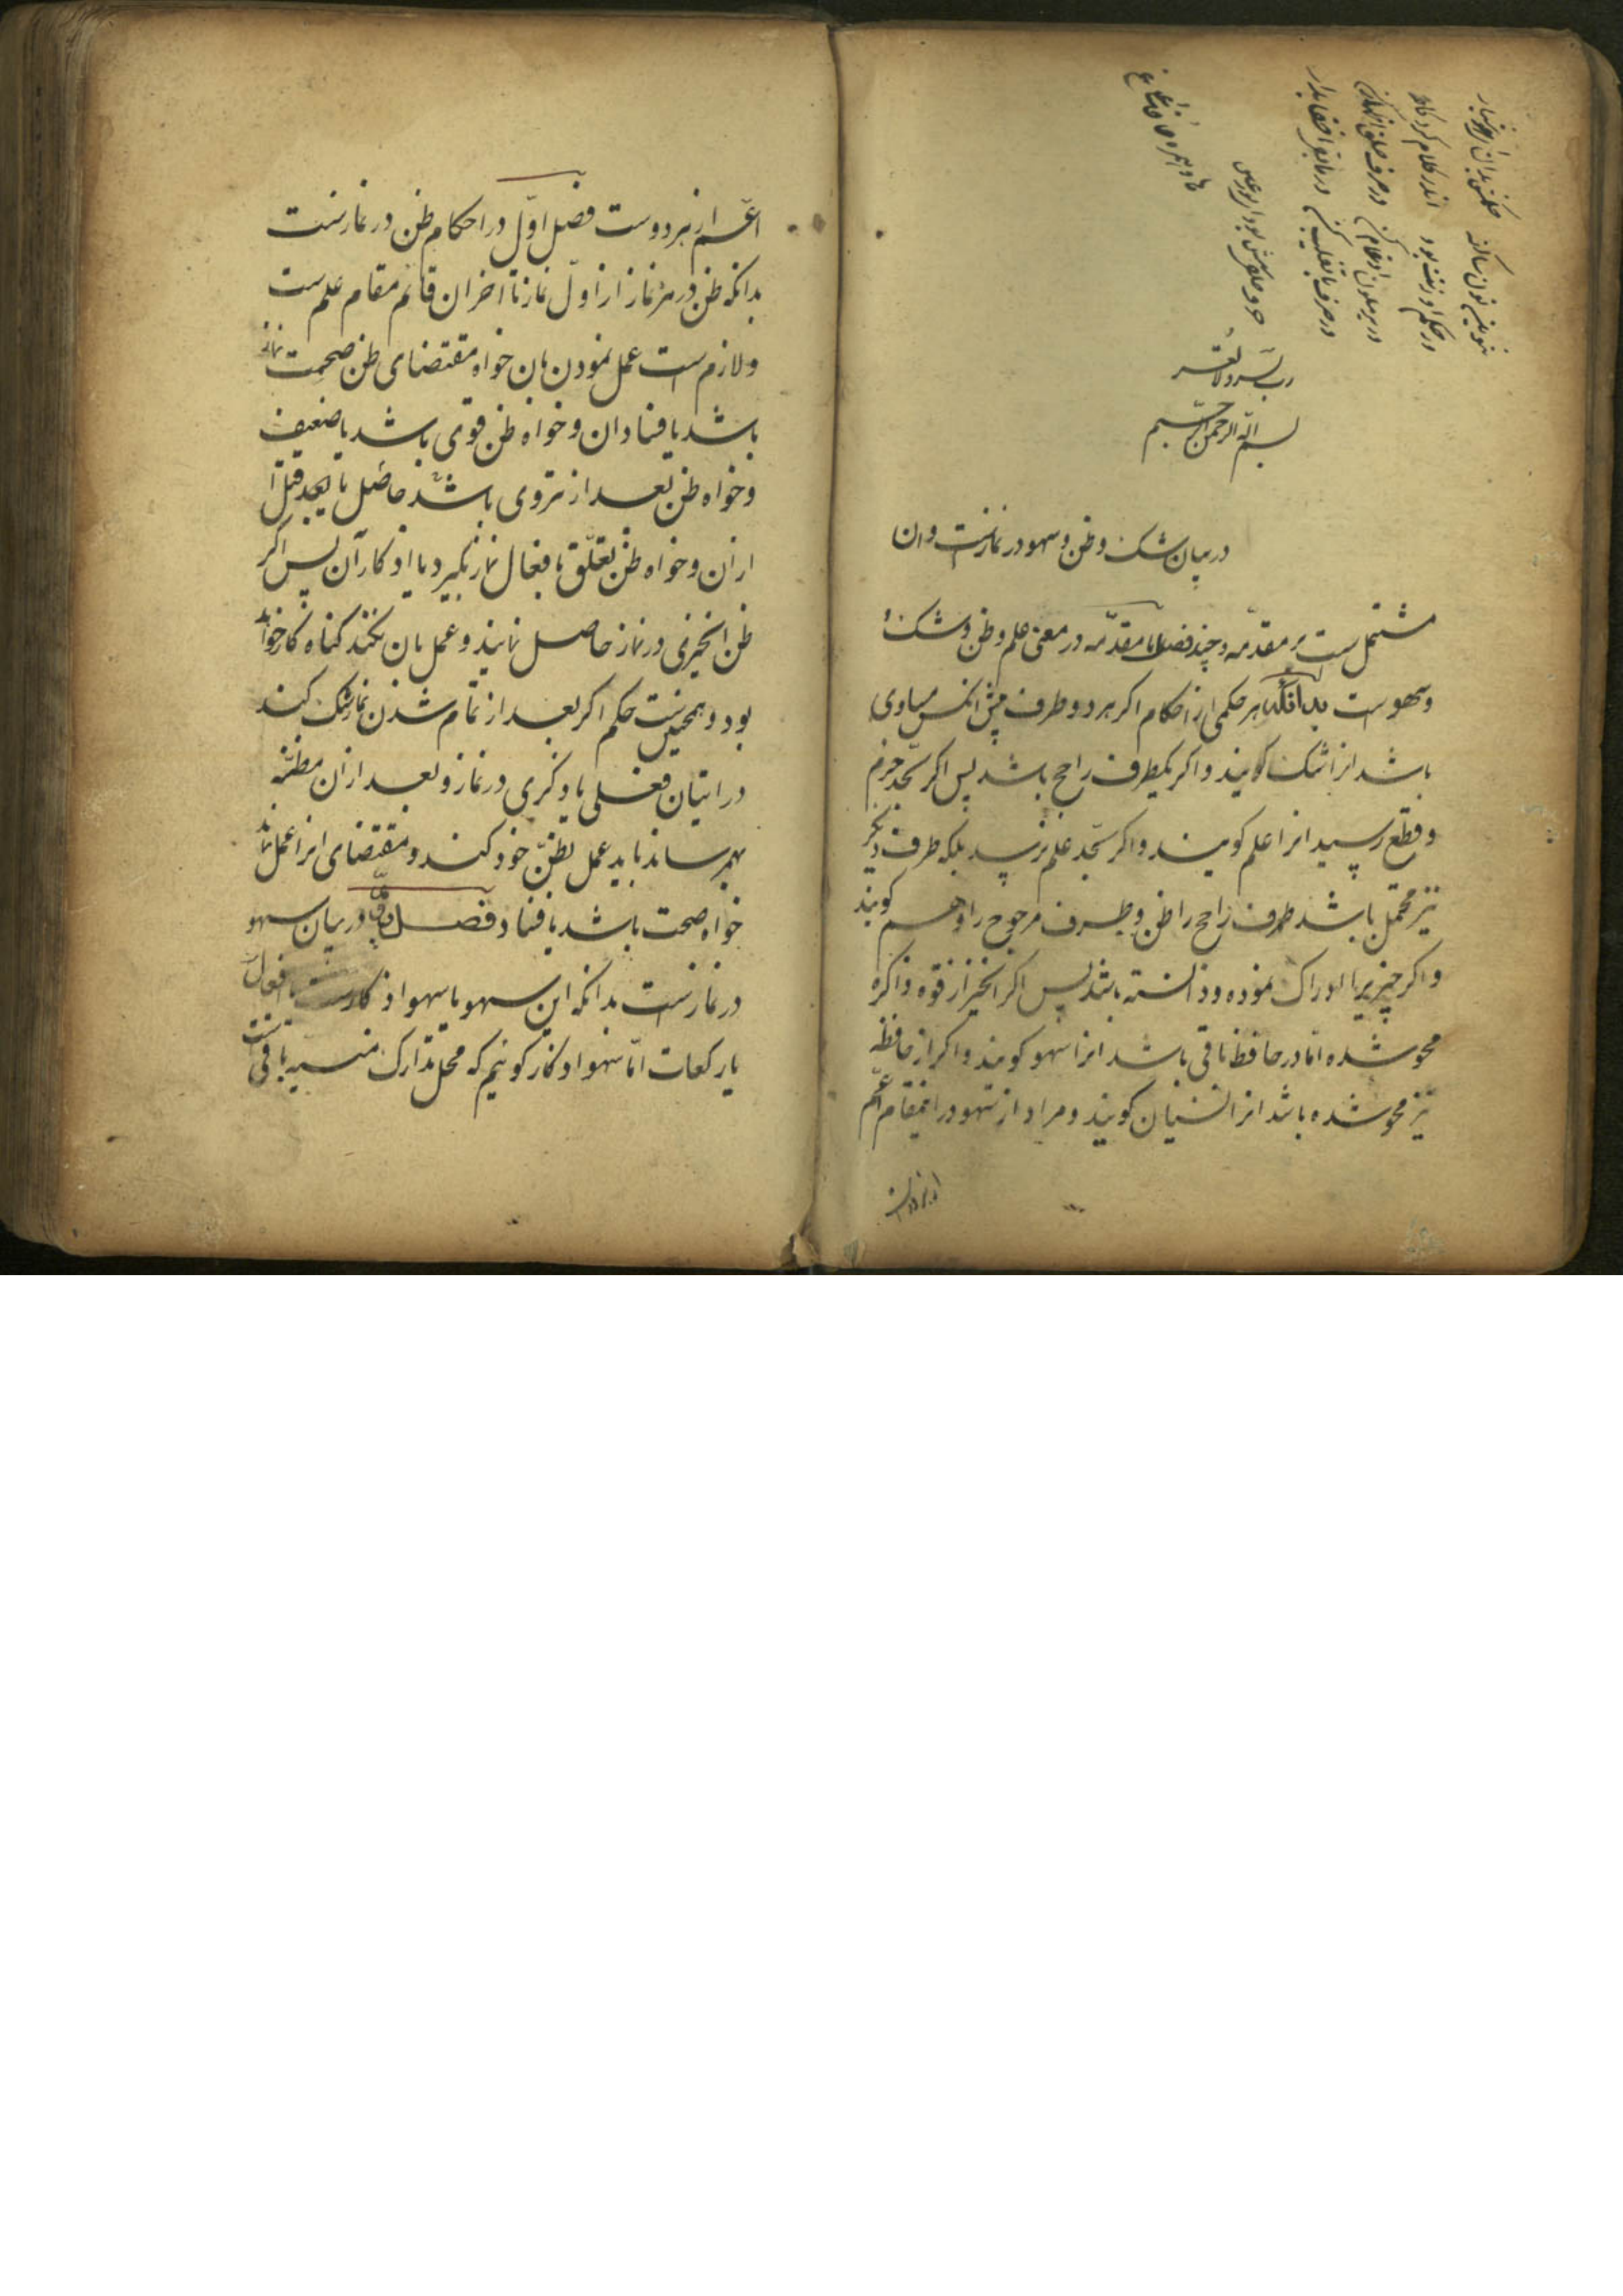 تنوین و نون ساکنه حکمش بدان ای هوشیار
در حکم او زینت بود اندر کلام کردگار
در یرملون ادغام کن در حرف حلق اظهار کن
در حرف با تقلیب کن در مابقی اخفا بدار
حرف حلقی شش بود ای نور عین
ها و همزه حا و خا و عین و غین
رب یسر و لا تعسر
بسم الله الرحمن الرحیم
در بیان شک و ظن و سهو در نمازست و ان
مشتمل است بر مقدمه و چند فصل اما مقدمه در معنی علم و ظن و شک
و سهو است بدانکه هر حکمی از احکام اگر هر دو طرف پیش انکس مساوی
باشد انرا شک گویند و اگر یکطرف راجح باشد پس اگر بحد جزم
و قطع رسید انرا علم گویند و اگر بحد علم نرسید بلکه طرف دیگر
نیز محتمل باشد طرف راجح را ظن و طرف مرجوح را وهم گویند
و اگر چیزیرا ادراک نموده و دانسته باشد پس اگر انچیز از قوه ذاکره
محو شده اما در حافظه باقی باشد انرا سهو گویند و اگر از حافظه
نیز محو شده باشد انرا نسیان گویند و مراد از سهو در اینمقام اعم
از هر دواست
اعم از هر دوست فصل اول در احکام ظن در نمازست
بدانکه ظن در هر نماز از اول نماز تا اخر ان قائم مقام علم ست
و لازم است عمل نمودن بان خواه مقتضای ظن صحت نماز
باشد یا فساد ان و خواه ظن قوی باشد یا ضعیف
و خواه ظن بعد از تروی باشد حاصل یا قبل
از ان و خواه ظن تعلق بافعال نماز بگیرد یا اذکار آن پس اگر
ظن انچیزی در نماز حاصل نمایند و عمل بان نکنند گناه کار خواهد
بود و همچنین ست حکم اگر بعد از تمام شدن نماز شک کند
در اتیان فعلی یا ذکری در نماز و بعد از ان مظنه
بهم رساند باید عمل بظن خود کند و مقتضای انرا عمل نماید
خواه صحت باشد یا فساد فصل دوم در بیان سهو
در نمازست بدانکه این سهو یا سهو اذکارست یا افعال
یا رکعات اما سهو اذکار گوئیم که محل تدارک منسیه باقی ست